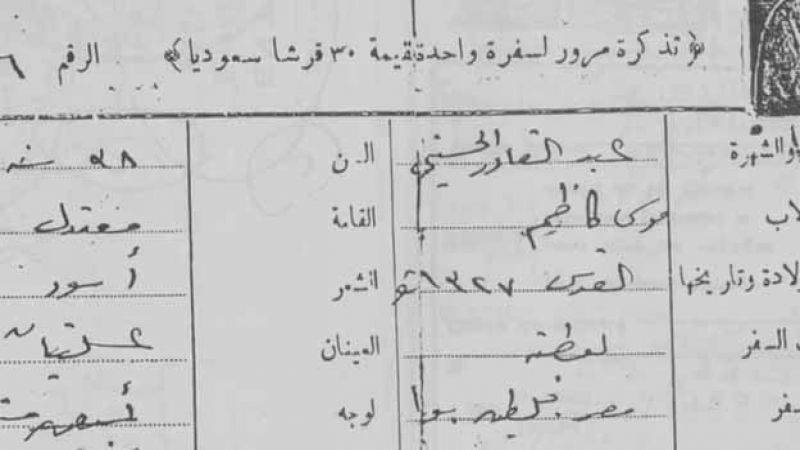 ﴿تذكرة مرور لسفرة واحدة قيمة ٣٠ قرشا سعوديا﴾ الرقم ٦
والشهرة عبد القادر الحسيني السن ٣٨ سنه
لاب موسى كاظم القامة معتدل
لادة وتاريخها القدس ١٣٢٧ الشعر أسود
السفر العينان عسليتان
سفر مصر فلسطين لوجه أسمر